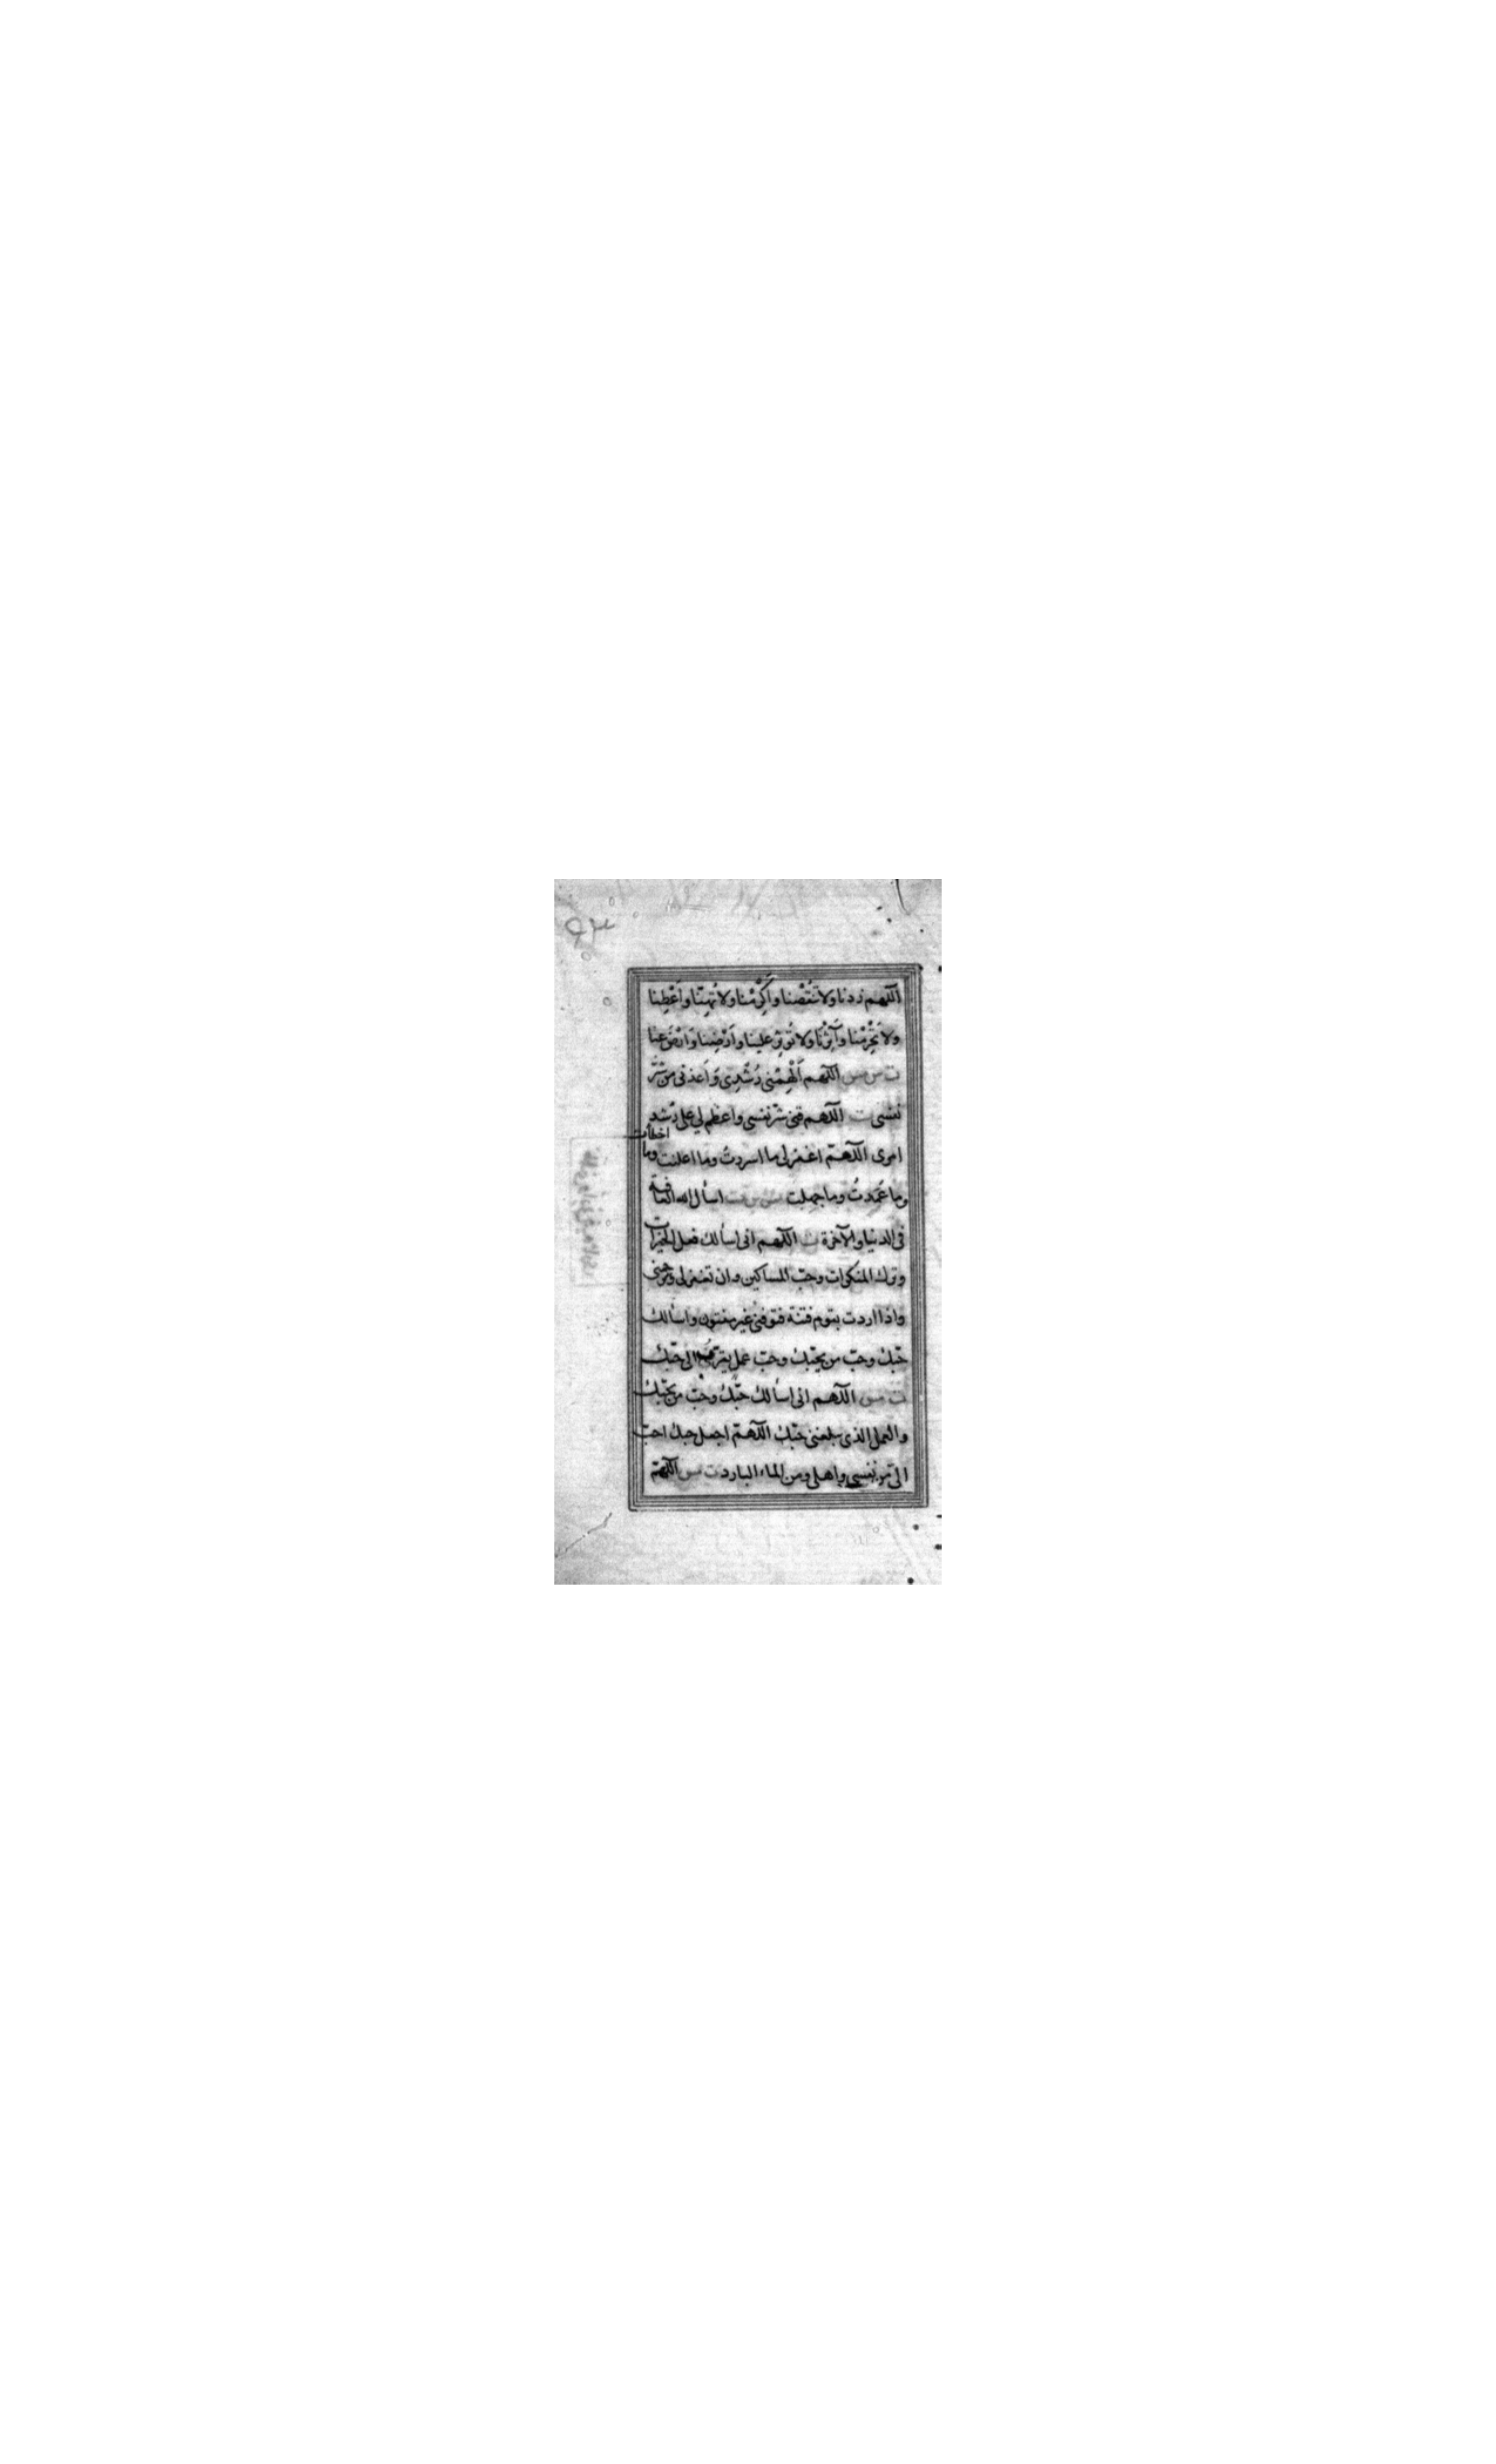 اللهم زدنا ولا تَنْقُصْنا وأَكْرِمْنا ولا تُهِنّا وأَعْطِنا
ولا تَحْرِمْنا وآثِرْنا ولا تُؤثِر علينا وأَرْضِنا وَارْضَ عنا
ت س مس اللهم أَلْهِمْنى رُشْدِى وَأعذنى من شرّ
نفسى ت اللهم قنى شرّ نفسى واعظم لي على رُشد
امرى اللهمّ اغفرلى ما اسررتُ وما اعلنت وما اخطأت
وما عَمدتُ وما جهلت س مس اسأل الله العافية
فى الدنيا والآخرة ت اللهم انى اسألك فعل الخيرات
وترك المنكرات وحبّ المساكين وان تغفرلى وترحمنى
واذا اردت بقوم فتنة فتوفّنى غير مفتون واسألك
حبّك وحبّ من يحبّك وحبّ عمل يقرّب الى حبّك
ت مس اللهم انى اسألك حبّك وحبّ من يحبّك
والعمل الذى يبلغنى حبّك اللهمّ اجعل حبك احبّ
الىّ من نفسى واهلى ومن الماء البارد ت مس اللهمّ